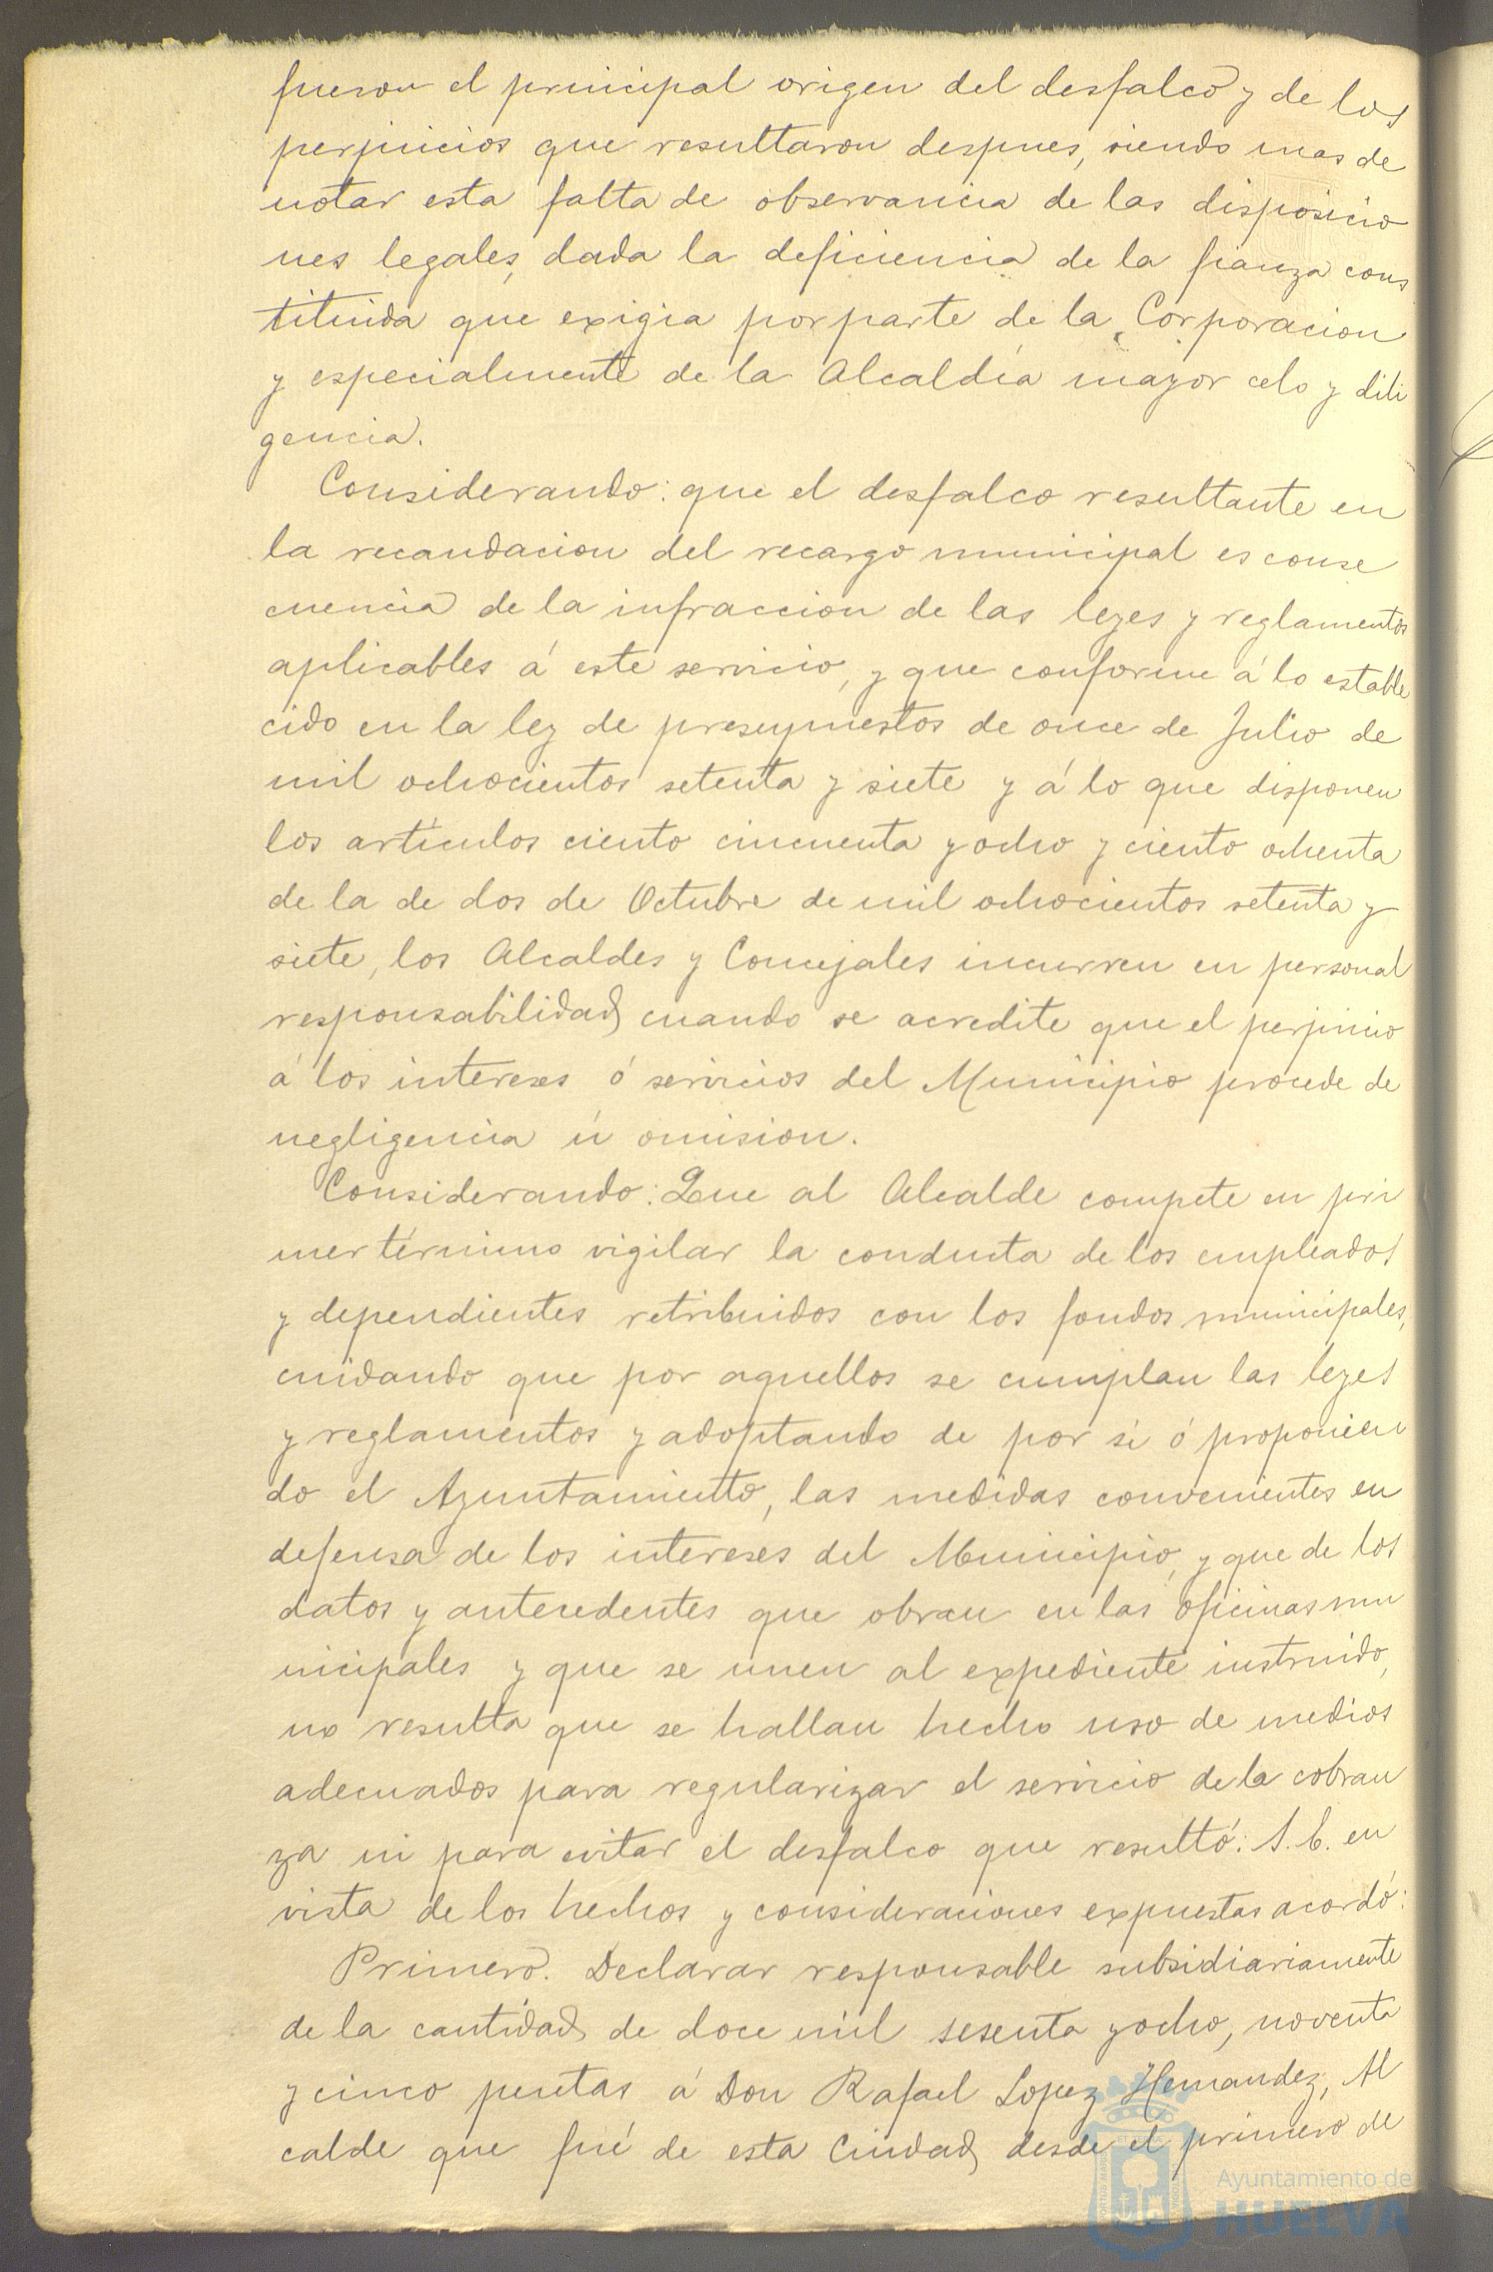 fueron el principal origen del desfalco y de los
perjuicios que resultaron despues, siendo mas de
notar esta falta de observancia de las disposicio
nes legales, dada la deficiencia de la fianza cons
tituida que exigia por parte de la Corporacion
y especialmente de la Alcaldía mayor celo y dili
gencia.
Considerando: que el desfalco resultante en
la recaudacion del recargo municipal es conse
cuencia de la infraccion de las leyes y reglamentos
aplicables á este servicio, y que conforme á lo estable
cido en la ley de presupuestos de once de Julio de
mil ochocientos setenta y siete y á lo que disponen
los artículos ciento cincuenta y ocho y ciento ochenta
de la de dos de Octubre de mil ochocientos setenta y
siete, los Alcaldes y Concejales incurren en personal
responsabilidad cuando se acredite que el perjuicio
á los intereses ó servicios del Municipio procede de
negligencia ú omision.
Considerando: Que al Alcalde compete en pri
mer término vigilar la conducta de los empleados
y dependientes retribuidos con los fondos municipales,
cuidando que por aquellos se cumplan las leyes
y reglamentos y adoptando de por si ó proponien
do el Ayuntamiento, las medidas convenientes en
defensa de los intereses del Municipio, y que de los
datos y antecedentes que obran en las oficinas mu
nicipales y que se unen al expediente instruido,
no resulta que se hallan hecho uso de medios
adecuados para regularizar el servicio de la cobran
za ni para evitar el desfalco que resultó: S. E. en
vista de los hechos y consideraciones expuestas acordó:
Primero. Declarar responsable subsidiariamente
de la cantidad de doce mil sesenta y ocho, noventa
y cinco pesetas á Don Rafael Lopez Hernandez, Al
calde que fué de esta Ciudad desde el primero de
Ayuntamiento de
HUELVA